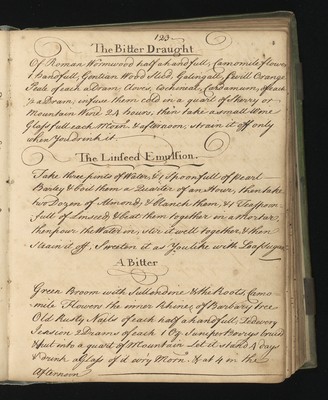 123
The Bitter Draught
Of Roman Wormwood half a handfull, Camomile flowers
1 handfull, Gentian Wood Slic'd, Galingall, Sevill Orange
Peal of each a Dram, Cloves, Cochineal, Cardamum, of each
½ a Dram, infuse them cold in a quart of Sherry or
Mountain Wine 24 hours, then take a small Wine
Glass full each Morn: & afternoon; strain it off only
when You drink it
The Linseed Emulsion.
Take three pints of Water, & 1 Spoonfull of Pearl
Barly & boil them a Quarter of an Hour, then take
two Dozen of Almond, & blanch them, & 1 Teaspoon
full of Linseed, & beat them together in a mortar,
then pour the Water in, stir it well together, & then
Strain it off. Sweeten it as You like with Loaf Sugar
A Bitter
Green Broom with & the Roots, Camo-
mile Flowers the inner Rhine of Barbary tree
Old Rusty Nails of each half a handfull,
2 Drams of each 1 Oz Juniper Berrys bruised
& put into a quart of Mountain Let it stand 4 days
& drink a Glass of it ev'ry Morn: & at 4 in the
Afternoon